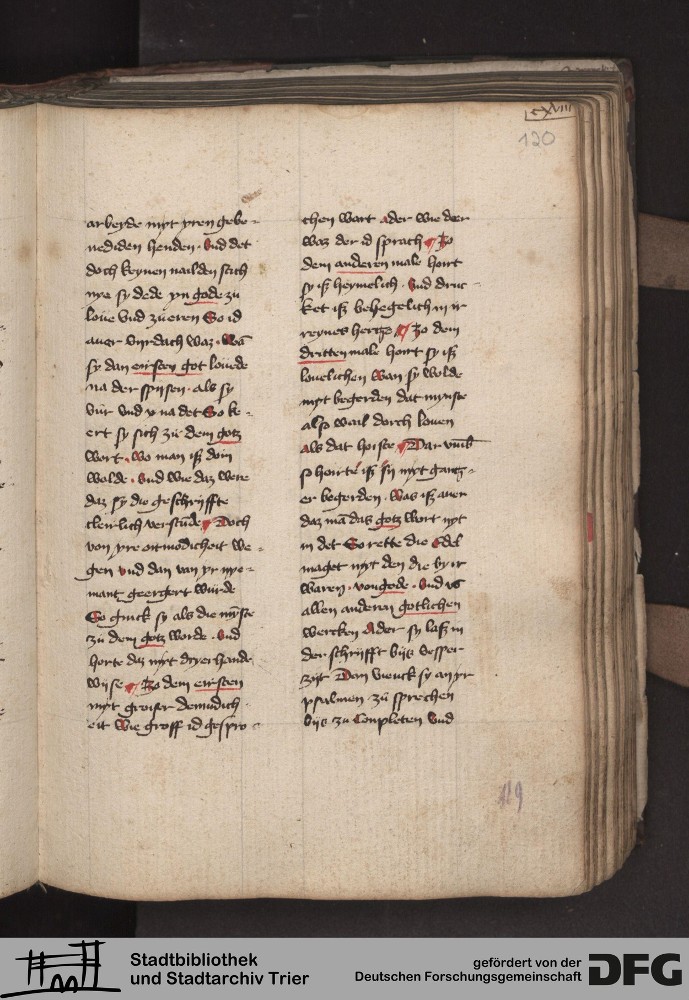 cxviii
120
arbeyde myt yren gebe-
nediden henden. Vnd det
doch keynen nailden stich
nye sy dede yn gode zu
loue vnd zu eren So id
auer vmdach waz. wā
sy dan eirsten got louede
na der spysen. als sy
vur vnd v na det So ke-
ert sy sich zu dem gotz
wort. wo man iß doin
wolde. Vnd wie daz were
daz sy die geschryffte
cleirlich verstūde Doch
von yre oitmodicheit we-
gen vnd dan van yr nye-
mant geergert wurde
So ginck sy als die mȳste
zu dem gotz worde. Vnd
horte daz myt dryerhande
wyse Zo dem eirsten
myt groiser demudich
eit wie groff id gespro-
chen wart ader wie der
waz der id sprach Zo
dem anderen male hoirt
sy iß heymelich. Vnd druc-
ket iß behegelich in ir
reynes hertze Zo dem
dritten male hoirt sy iß
louelichen wan sy wolde
myt begerden dat mynste
also wail dorch louen
als dat hoiste Dar vmb
so hoirte iß sy myt gantz-
er begerden. Was iß auer
daz mā das gotz wort nyt
in det So rette die Edel
maget myt den die by ir
waren. von gode. Vnd vs
allen anderen gotlichen
wercken Ader sy laß in
der schryfft byß vesper
zyt Dan vienck sy an yr
psalmen zu sprechen
byß zu Conpleten Vnd
119
Stadtbibliothek
und Stadtarchiv Trier
gefördert von der
Deutschen Forschungsgemeinschaft
DFG